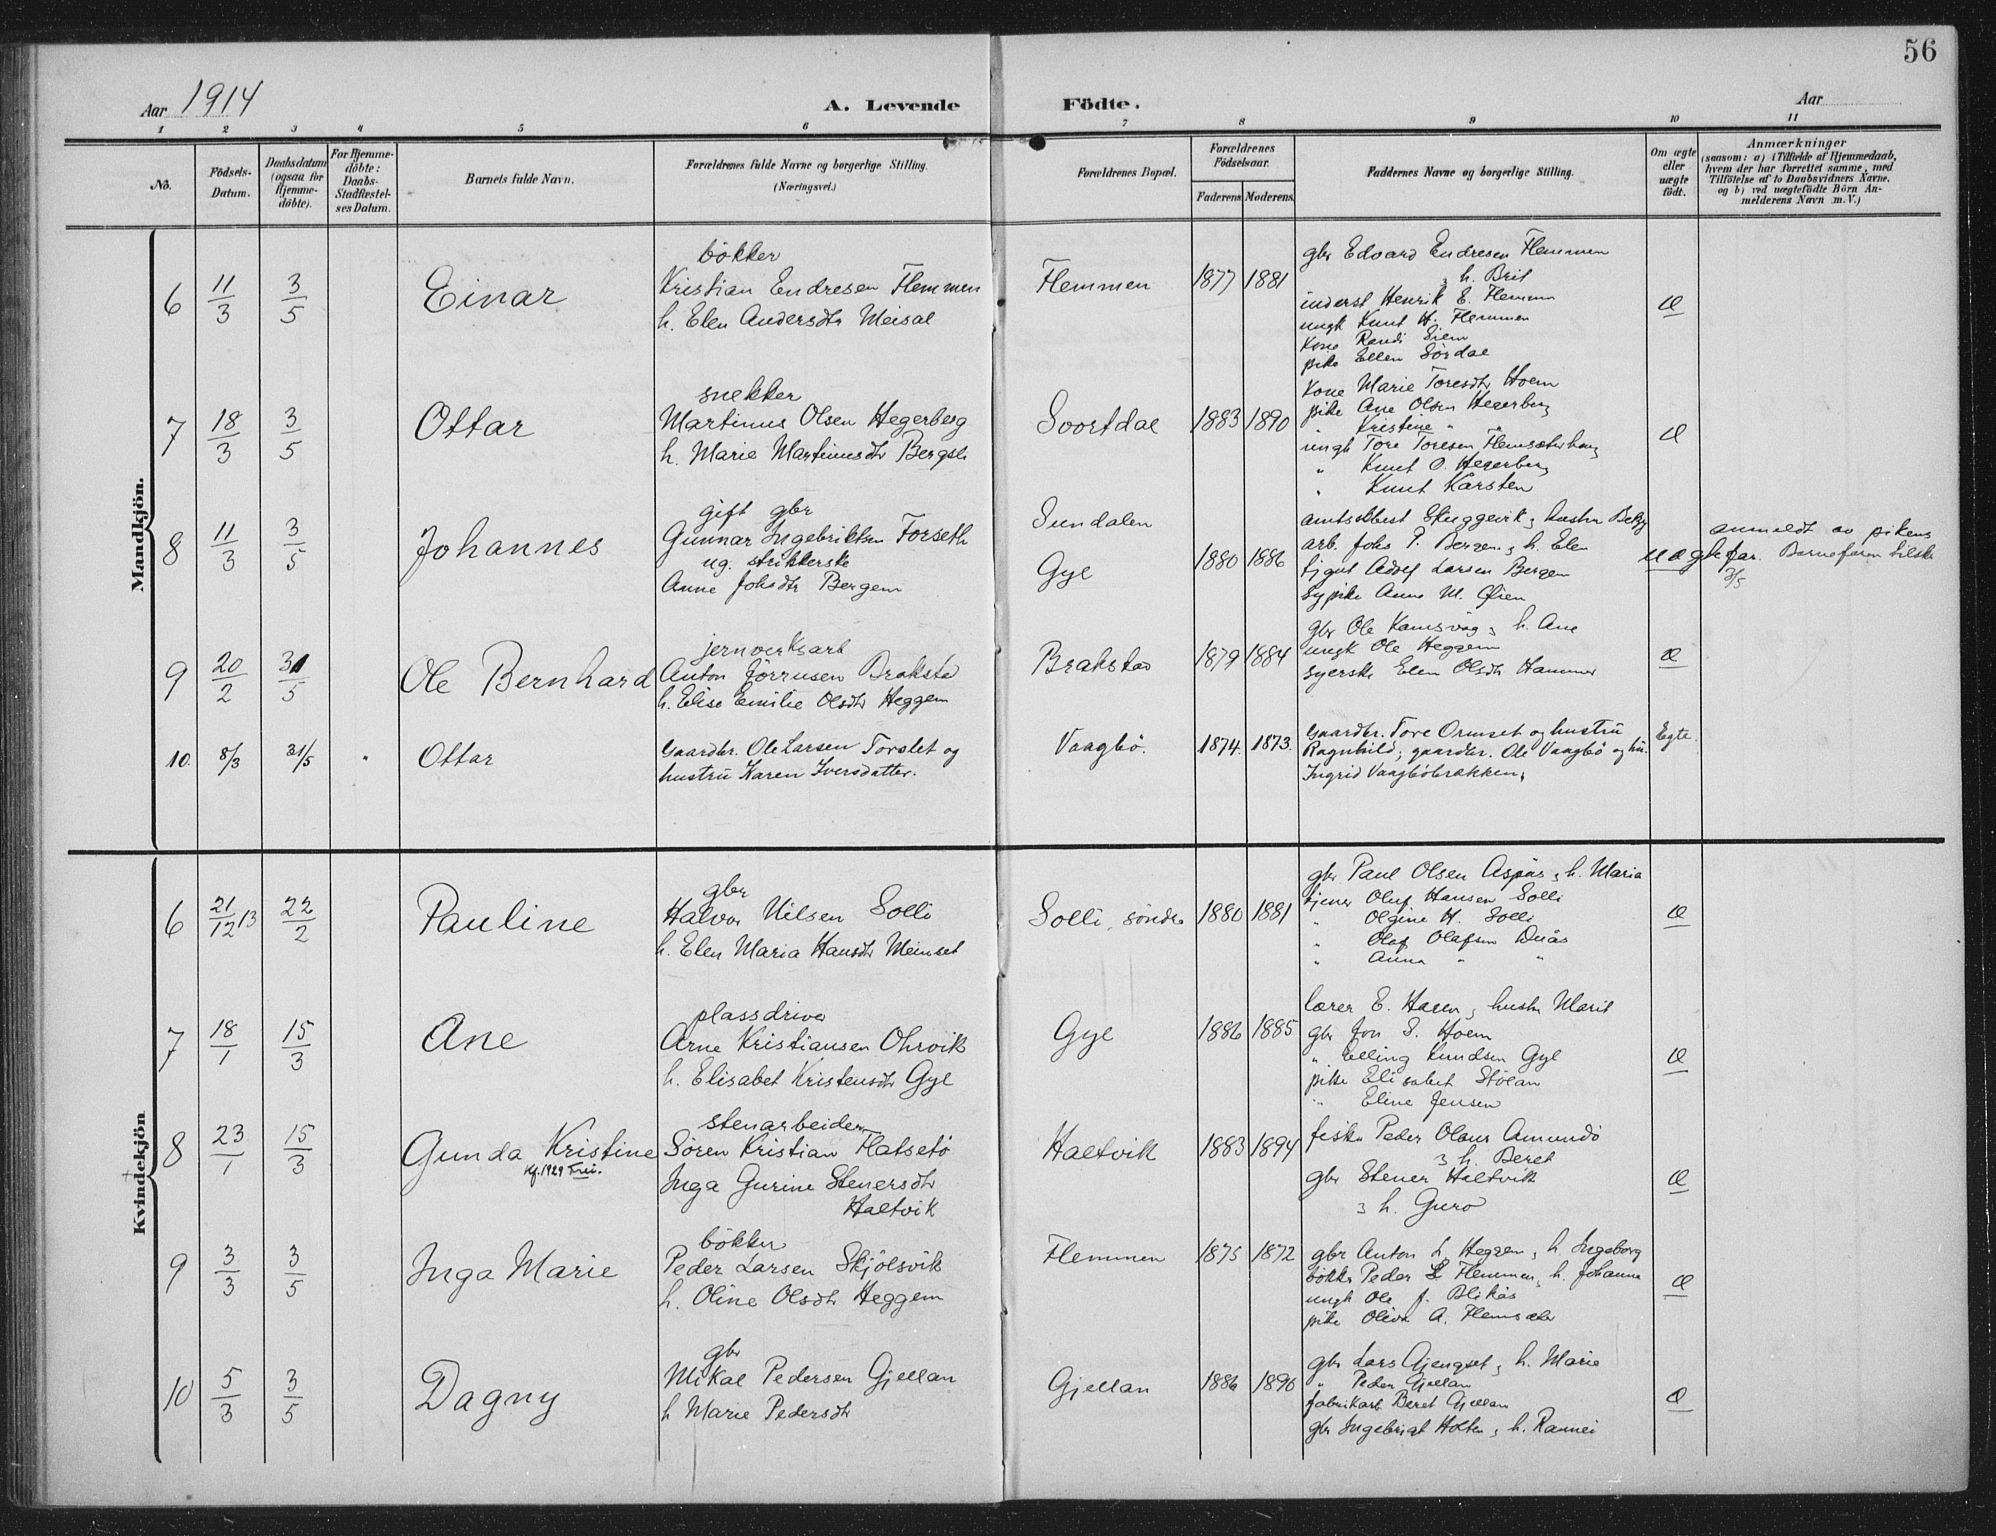 56
Aar 1914
A. Levende Födte.
Aar
1 2 3 4 5 6 7 8 9 10 11
No.
Födsels-Datum.
Daabsdatum (ogsaa for Hjemme-döbte).
For Hjemme-döbte: Daabs-Stadfæstel-ses Datum.
Barnets fulde Navn.
Forældrenes fulde Navne og borgerlige Stilling. (Næringsvei.)
Forældrenes Bopæl.
Forældrenes Födselsaar.
Faderens Moderens
Faddernes Navne og borgerlige Stilling.
Om ægte eller uægte födt.
Anmærkninger
(saasom: a) i Tilfælde af Hjemmedaab,
hvem der har forrettet samme, med
Tilföielse af to Daabsvidners Navne.
og b) ved uægtefödte Börn An-
melderens Navn m.V.)
Mandkjön.
6 11/3 3/5 Einar
bökker
Kristian Endresen Flemmen
h. Elen Andersdtr Meisal
Flemmen 1877 1881
gbr Edvard Endresen Flemmen
& h. Brit
inderst Henrik E. Flemmen
ungk Knut H. Flemmen
kone Randi Siem
pike Ellen Sördal
Æ
7 18/3 3/5 Ottar
snekker
Martinus Olsen Hegerberg
h. Marie Martinusdtr
Soortdal 1883 1890
kone Marie Toresdtr Hoem
pike Ane Olsen Hegerberg
" Kristine " "
ungk Tore Toresen
" Knut O. Hegerberg
" Knut Karsten
Æ
8 11/3 3/5 Johannes
gift gbr
Gunnar Ingebriktsen Forseth
ug. strikkerske
Anne Johsdtr Bergem
Sundalen
Gyl 1880 1886
Skuggevik & hustru
arb. Johs P. Bergem & h. Elen
Adolf Larsen Bergem
sypike Anne M. Øien
uægte
anmeldt av pikens
far. Barnefaren
3/5
9 20/2 31/5 Ole Bernhard
jernverksarb
Anton Jörrusen Brakstad
h. Elise Emilie Olsdtr Heggem
Brakstad 1879 1884
gbr Ole Kamsvåg & h. Ane
ungk Ole Heggem
syerske Elen Olsdtr Hammer
Æ
10. 8/3 31/5 " Ottar
Gaardbr. Ole Larsen Torslet og
hustru Karen Iversdatter.
Vaagbö. 1874. 1873.
Gaardbr. Tore Ormset og hustru
Ragnhild; gaardbr. Ole Vaagbö og hu.
Ingrid Vaagböbrækken.
Egte.
Kvindekjön
6 21/12 13 22/2 Pauline
gbr
Halvor Nilsen Solli
h. Elen Maria Hansdtr Meinset
Solli, söndre 1880 1881
gbr Paul Olsen Aspås & h. Maria
tjener Oluf Hansen Solli
" Olgine H. Solli
" Olaf Olafsen
" Anna " "
Æ
7 18/1 15/3 Ane
plassdriver
Arne Kristiansen Ohrvik
h. Elisabet Kristensdtr Gyl
Gyl 1886 1885
lærer E. Haren & hustru Marit
gbr Jon S. Hoem
" Elling Knudsen Gyl
pike Elisabet Stölan
" Eline Jensen
Æ
8 23/1 15/3 Gunda Kristine
Kf. 1929 Frei.
stenarbeider
Sören Kristian Flatsetö
Inga Gurine Stenersdtr
Haltvik
Haltvik 1883 1894
fisker Peder Olaus Amundö
& h. Beret
gbr Stener Haltvik
& h. Guro
Æ
9 3/3 3/5 Inga Marie
bökker
Peder Larsen Skjölsvik
h. Oline Olsdtr Heggem
Flemmen 1875 1872
gbr Anton L. Heggem & h. Ingeborg
bökker Peder L Flemmen & h. Johanna
ungk Ole J. Blikås
pike Oliva A. Flemsæter
Æ
10 5/3 3/5 Dagny
gbr
Mikal Pedersen Gjellan
h Marie Pedersdtr
Gjellan 1886 1890
gbr Lars Gjengset & h. Marie
" Peder Gjellan
fabrikarb Beret Gjellan
gbr Ingebrigt Holten & h. Rannei
Æ